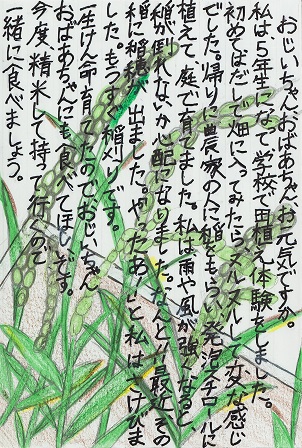 おじいちゃんおばあちゃんお元気ですか。
私は5年生になって学校で田植え体験をしました。
初めてはだしで畑に入ってみたらヌルヌルして変な感じ
でした。帰りに農家の人に稲をもらい、発泡スチロールに
植えて庭で育てました。私は雨や風が強くなると、
稲が倒れないか心配になりました。なんと!!最近、その
稲に稲穂が出ました。「やったあー」と、私はさけびま
した。もうすぐ稲刈りです。
一生けん命育てたのでおじいちゃん
おばあちゃんにも食べてほしいです。
今度、精米して持って行くので
一緒に食べましょう。